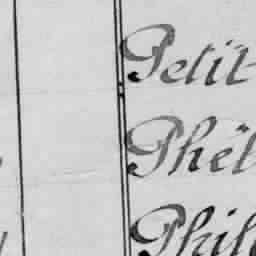 Petit
Phél
Phil